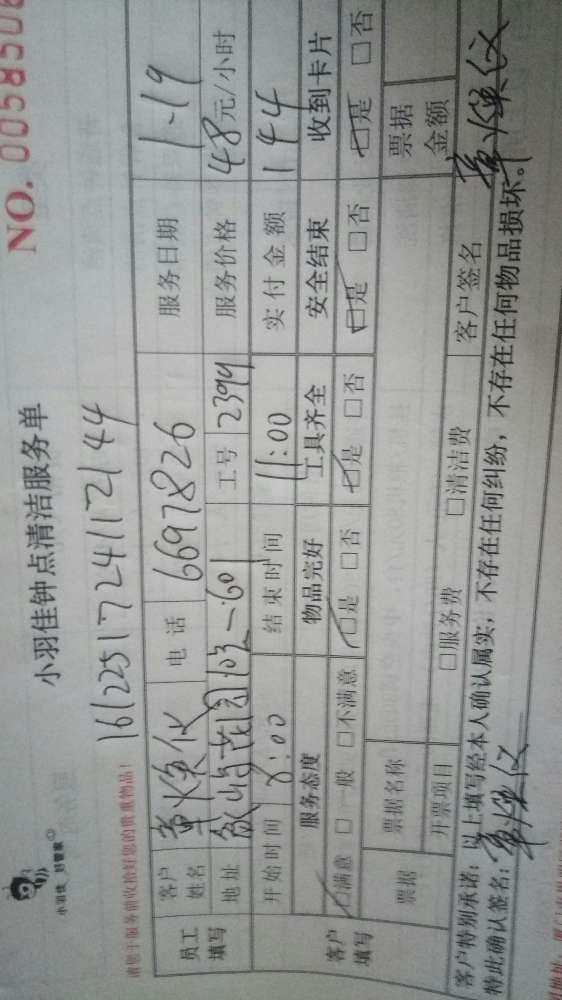 小羽佳 好管家
小羽佳钟点清洁服务单
NO. 0058506
161225172411 2144
请您于服务前收捡好您的贵重物品!
员工填写
客户姓名 电话 6697826 服务日期 1-19
地址 工号 2399 服务价格 48元/小时
开始时间 8:00 结束时间 11:00 实付金额 144
客户填写
服务态度 物品完好 工具齐全 安全结束 收到卡片
□满意 □一般 □不满意 □是 □否 □是 □否 □是 □否 □是 □否
票据 票据名称 票据金额
开票项目 □服务费 □清洁费
客户特别承诺:以上填写经本人确认属实,不存在任何纠纷,不存在任何物品损坏。
特此确认签名: 客户签名